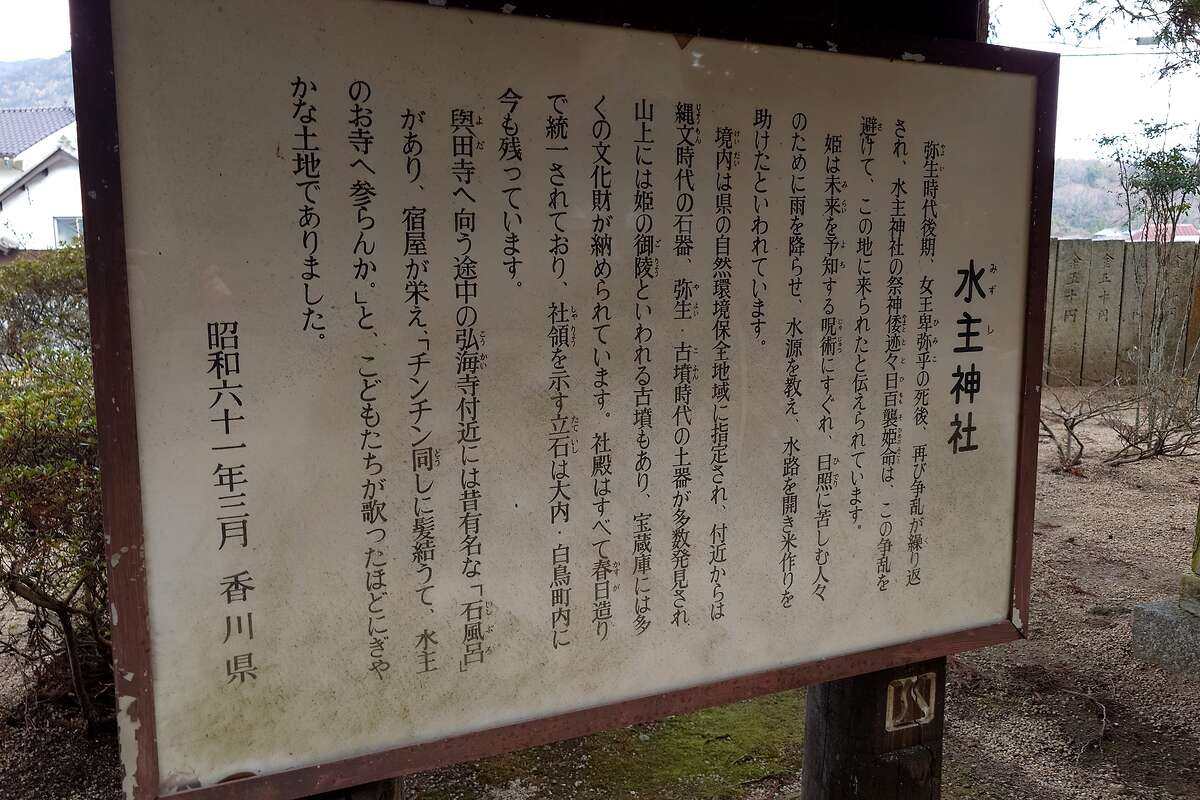 水主神社
弥生時代後期、女王卑弥乎の死後、再び争乱が繰り返
され、水主神社の祭神倭迹々日百襲姫命は、この争乱を
避けて、この地に来られたと伝えられています。
姫は未来を予知する呪術にすぐれ、日照に苦しむ人々
のために雨を降らせ、水源を教え、水路を開き米作りを
助けたといわれています。
境内は県の自然環境保全地域に指定され、付近からは
縄文時代の石器、弥生・古墳時代の土器が多数発見され
山上には姫の御陵といわれる古墳もあり、宝蔵庫には多
くの文化財が納められています。社殿はすべて春日造り
で統一されており、社領を示す立石は大内・白鳥町内に
今も残っています。
與田寺へ向う途中の弘海寺付近には昔有名な「石風呂」
があり、宿屋が栄え、「チンチン同しに髪結うて、水主
のお寺へ参らんか。」と、こどもたちが歌ったほどにぎや
かな土地でありました。
昭和六十一年三月 香川県